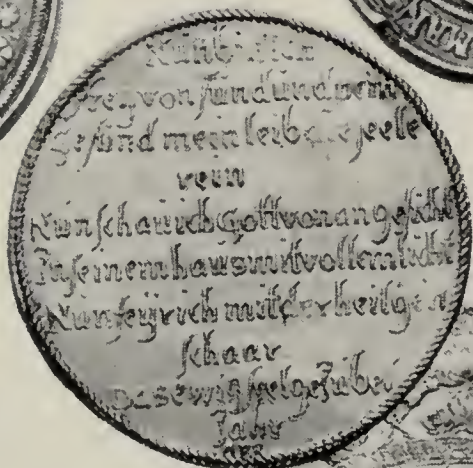 Nun bin ich
frey von sünd und pein
Gesund mein leib die seele
rein
Nun schau ich Gott von angesicht
In seinem haus mit vollem licht
Nun feyr ich mit der heilgen
schaar
Das ewig
Jahr